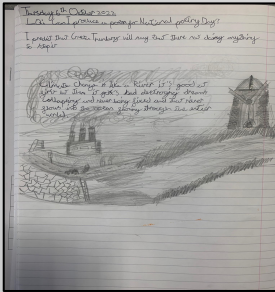 Tuesday 6th October 2022
L.O: Can I produce a poem for National Poetry Day?
I predict that Greta Thunberg will say that there not doing anything
to help
Climate Change is like a River it's good at
first at then it gets bad destroying
collapsing and never being fixed and that river
flows into the ocean going through the entire
world.